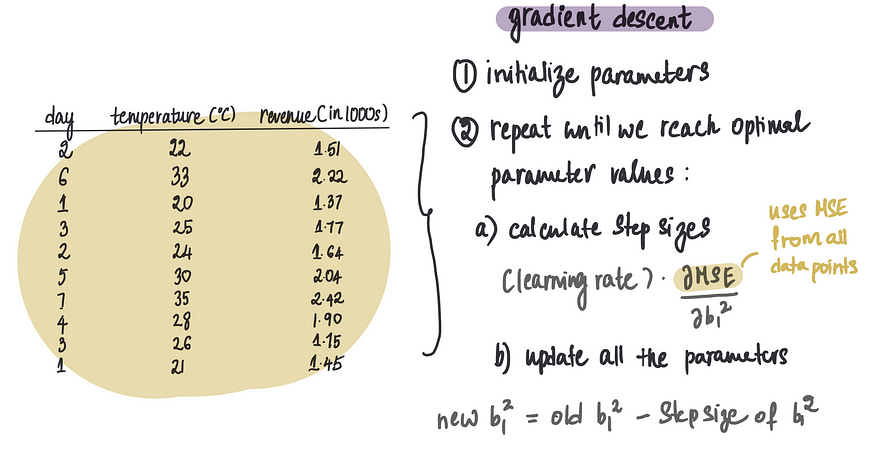 gradient descent
① initialize parameters
day temperature (°C) revenue (in 1000s)
2 22 1.51
6 33 2.22
1 20 1.37
3 25 1.77
2 24 1.64
5 30 2.04
7 35 2.42
4 28 1.90
3 26 1.75
1 21 1.45
② repeat until we reach optimal
parameter values :
a) calculate step sizes
(learning rate) · ∂MSE
∂b₁²
uses MSE
from all
data points
b) update all the parameters
new b₁² = old b₁² - Step size of b₁²